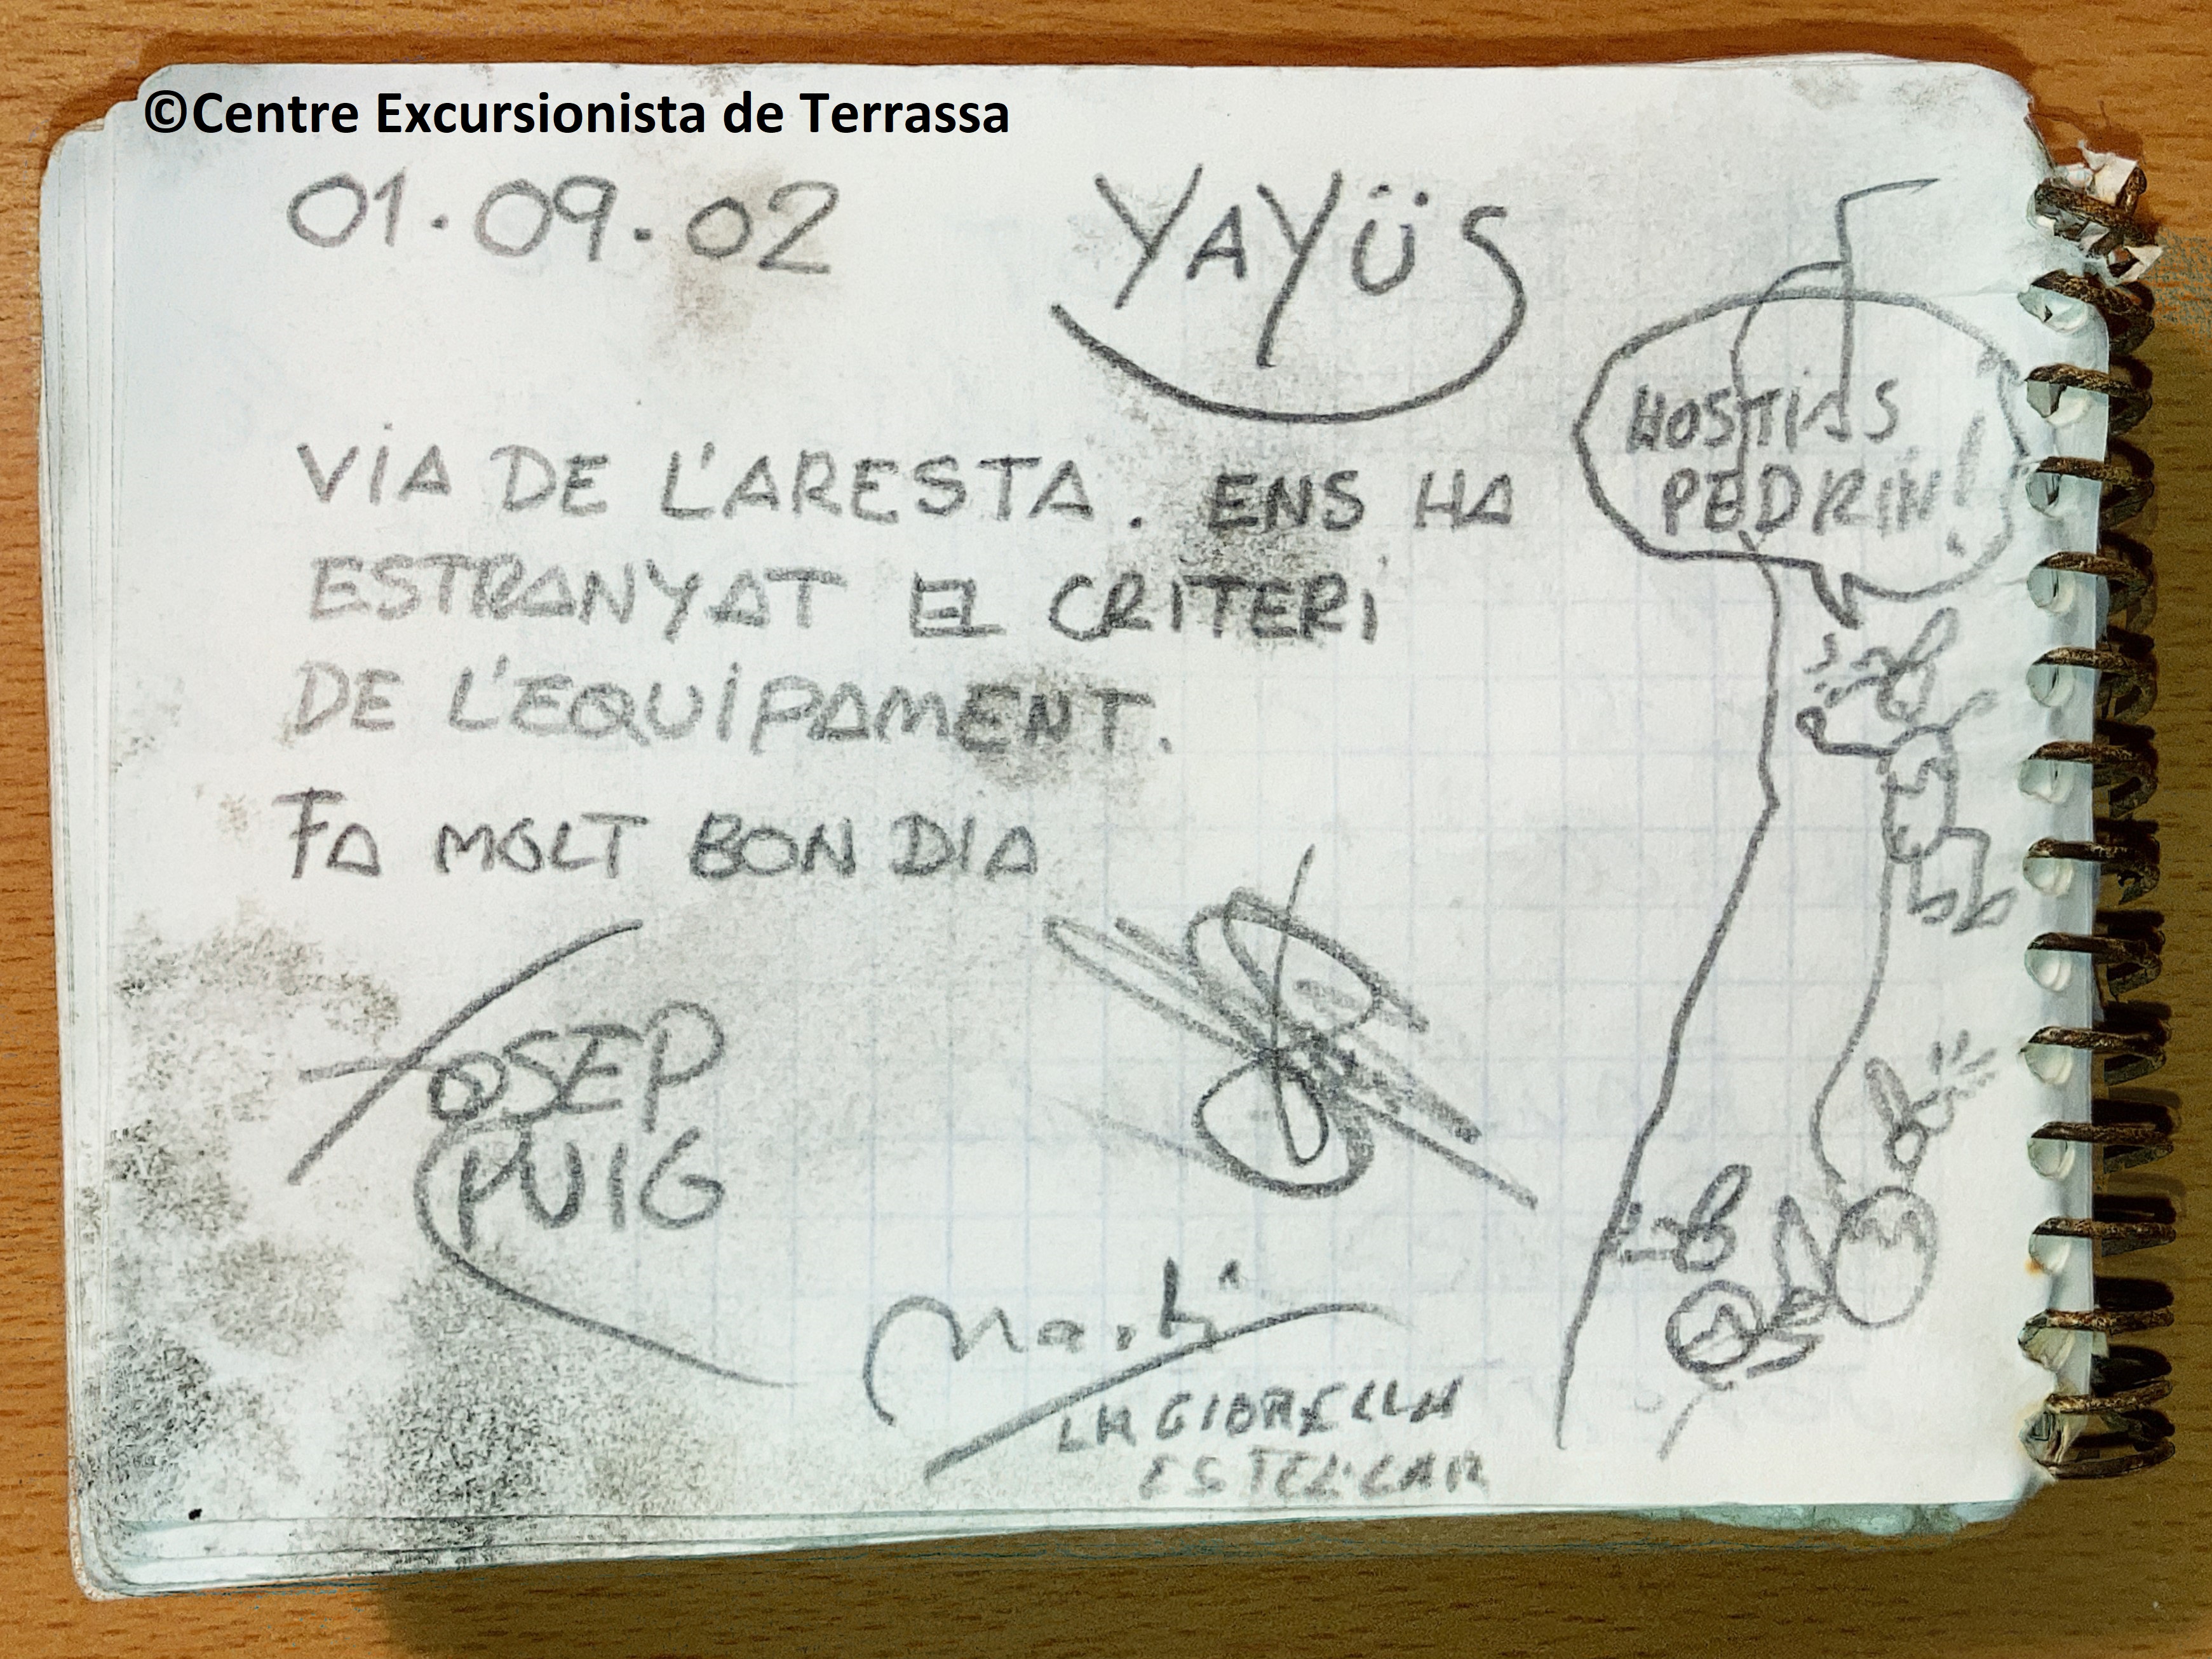 ©Centre Excursionista de Terrassa
01.09.02
YAYÜS
VIA DE L'ARESTA. ENS HA
ESTRANYAT EL CRITERI
DE L'EQUIPAMENT.
FA MOLT BON DIA
HOSTIAS
PEDRIN!
JOSEP
PUIG
Martí
LA GIDRELLA
ESTEL·LAR